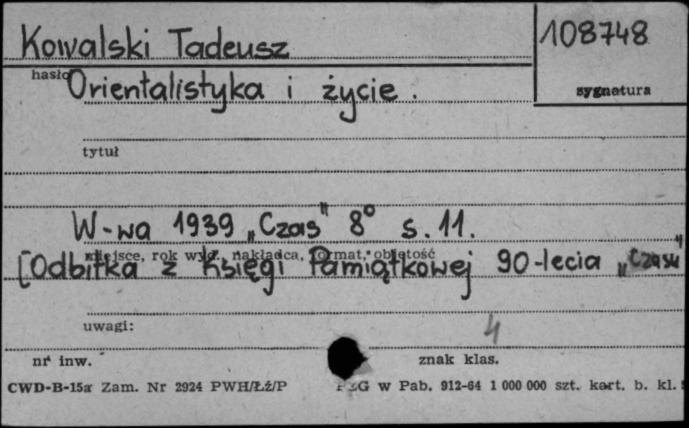 Kowalski Tadeusz
108748
hasło
Orientalistyka i życie.
sygnatura
tytuł
W-wa 1939 „Czas" 8° s. 11.
miejsce, rok wyd., nakładca, format, objętość
[Odbitka z Księgi Pamiątkowej 90-lecia „Czasu"
uwagi:
4
nr inw.
znak klas.
CWD-B-15a Zam. Nr 2924 PWH/Łź/P
w Pab. 912-64 1 000 000 szt. kart. b. kl.